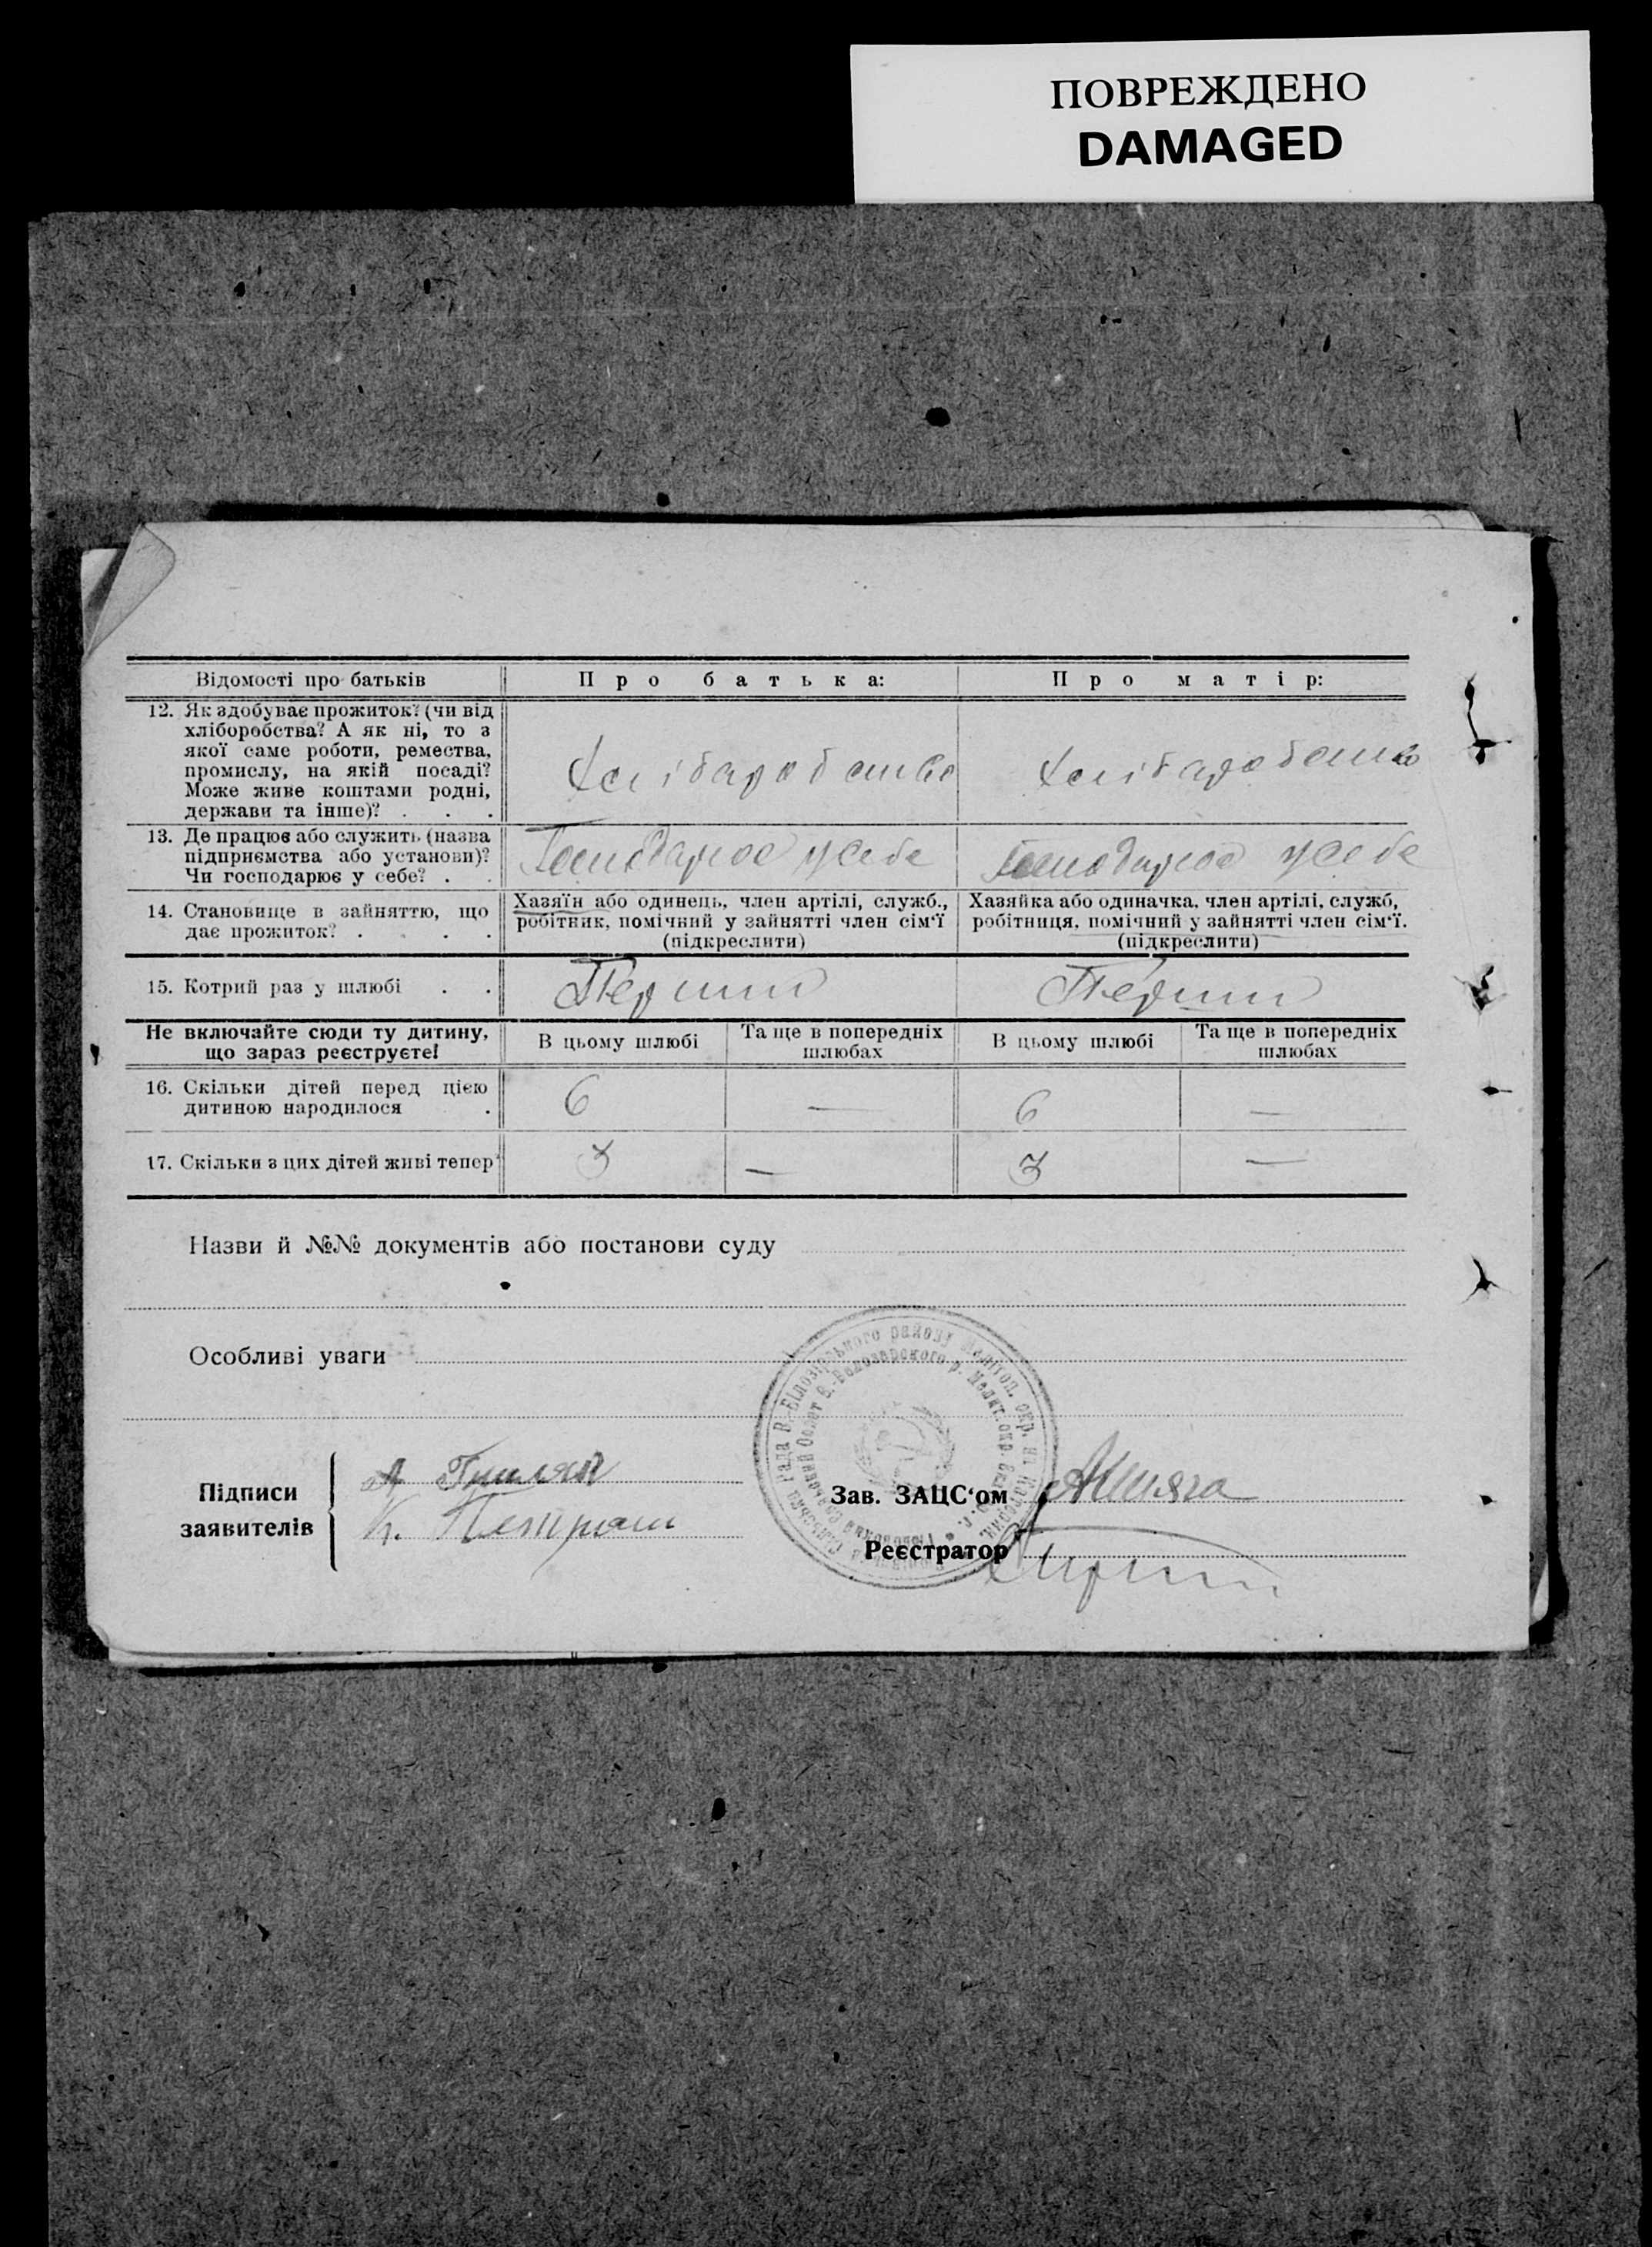 ПОВРЕЖДЕНО
DAMAGED
Відомості про батьків
Про батька:
Про матір:
12. Як здобуває прожиток? (чи від
хліборобства? А як ні, то з
якої саме роботи, ремества,
промислу, на якій посаді?
Може живе коштами родні,
держави та інше)? . . .
Хлібаробство
Хлібаробство
13. Де працює або служить (назва
підприємства або установи)?
Чи господарює у себе? . .
Господарює усебе
Господарює усебе
14. Становище в зайняттю, що
дає прожиток? . . . .
Хазяїн або одинець, член артілі, служб.,
робітник, помічний у зайнятті член сім‘ї
(підкреслити)
Хазяйка або одиначка, член артілі, служб,
робітниця, помічний у зайнятті член сім‘ї.
(підкреслити)
15. Котрий раз у шлюбі . .
Перший
Перший
Не включайте сюди ту дитину,
що зараз реєструєте!
В цьому шлюбі
Та ще в попередніх
шлюбах
В цьому шлюбі
Та ще в попередніх
шлюбах
16. Скільки дітей перед цією
дитиною народилося .
6 — 6 —
17. Скільки з цих дітей живі тепер?
3 — 3 —
Назви й №№ документів або постанови суду
Особливі уваги
Рада В. Білозірського району Меліто. окр.
Совет В. Белозерского р. Мелит. окр.
Підписи
заявителів
К. Петраш
Зав. ЗАЦС‘ом
Реєстратор